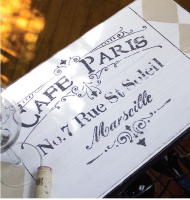 CAFE PARIS
No.7 Rue St Soleil
Marseille